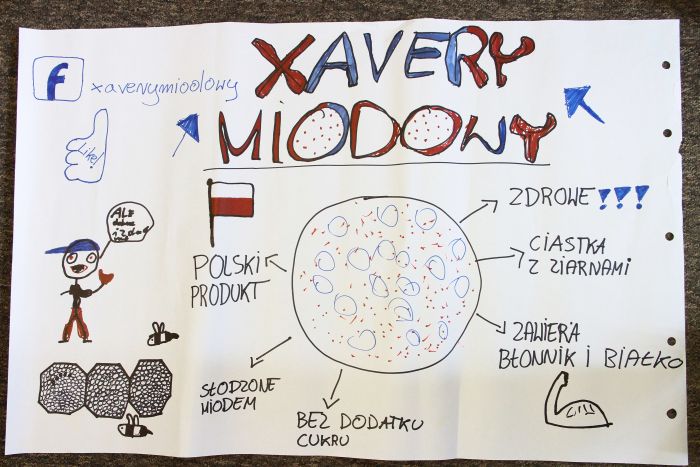 f
xaverymiodowy
XAVERY
MIODOWY
Like!
ALE
dobre
i zdrowe
POLSKI
PRODUKT
ZDROWE !!!
CIASTKA
Z ZIARNAMI
ZAWIERA
BŁONNIK I BIAŁKO
SŁODZONE
MIODEM
BEZ DODATKU
CUKRU